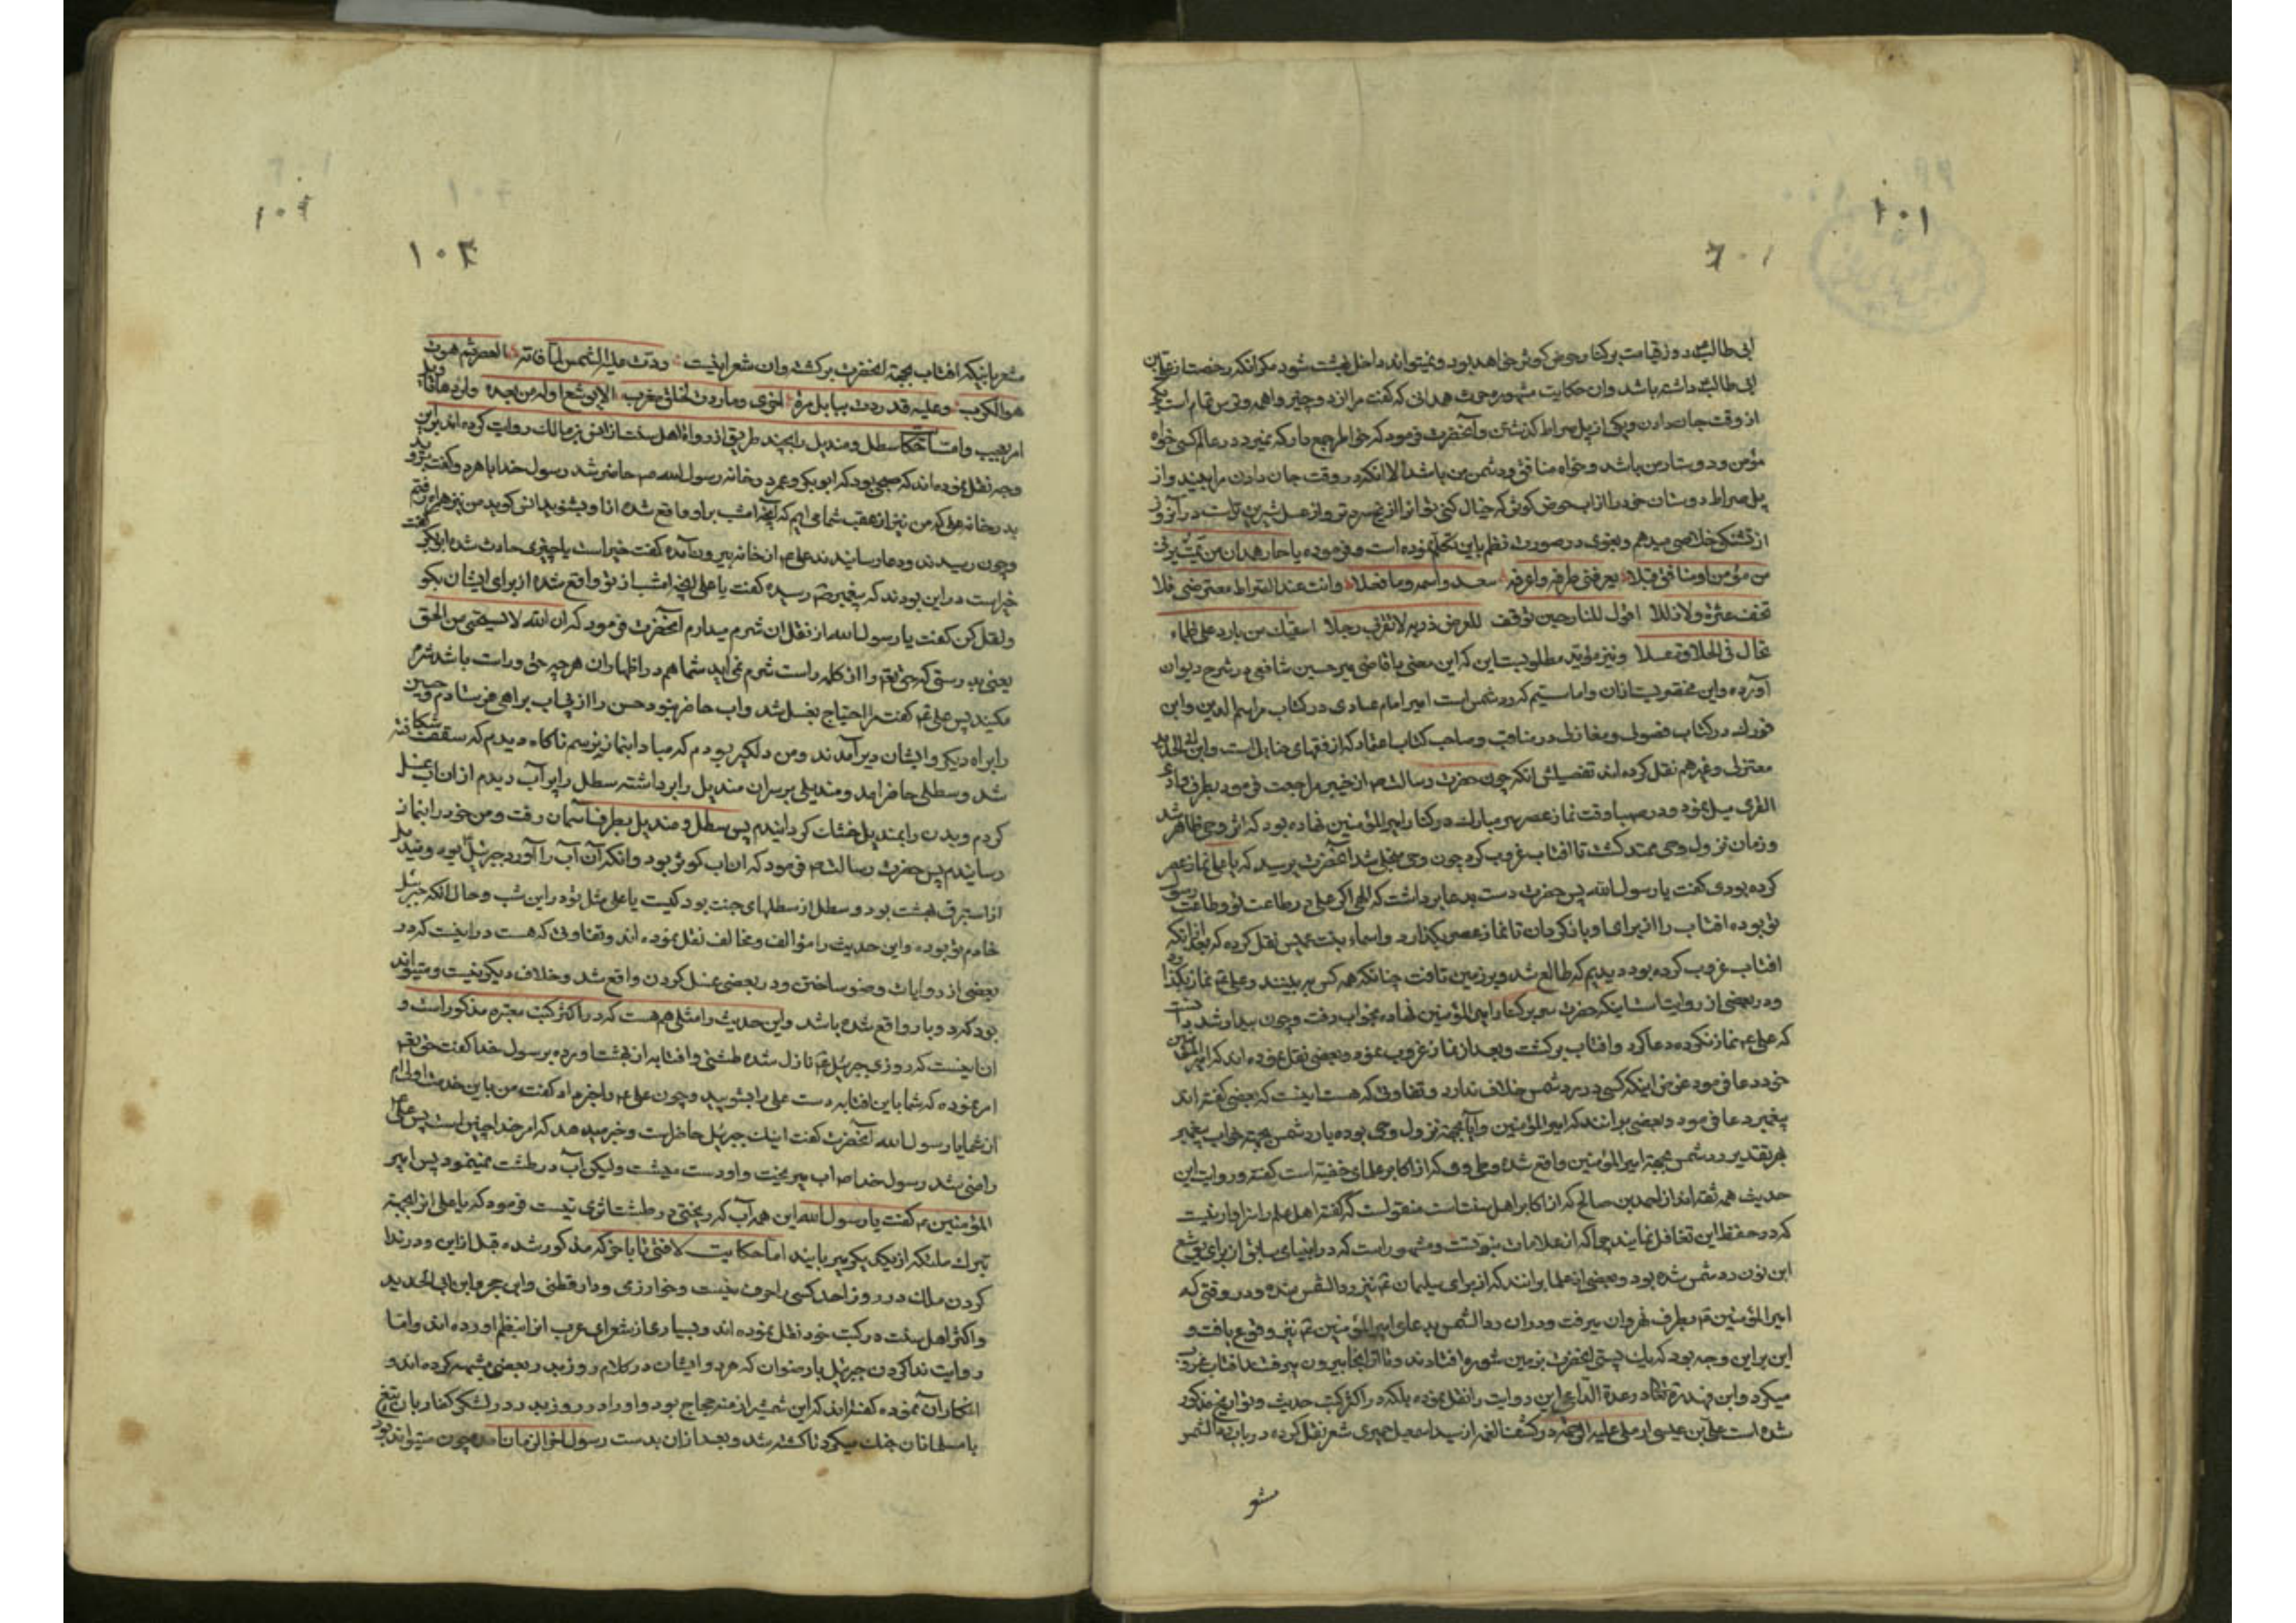 ۱۰۱
ابی طالب در روز قیامت بر کنار حوض کوثر خواهد بود و نمیتواند داخل بهشت شود مکر انکه رخصت از علی بن
ابی طالب داشته باشد وان حکایت مشهوره حرث همدانی که گفت مرا از دو چیز واهمه و ترس تمام است یکی
از وقت جان دادن ویکی از پل صراط کذشتن و آنحضرت فرمود که خواطر جمع دار که نمیرد در عالم کسی خواه
مؤمن ودوستار من باشد وخواه منافق ودشمن من باشد الا انکه در وقت جان دادن مرا بیند و از
پل صراط دوستان خود را از اب حوض کوثر که خیال کنی تو از از یخ سردتر و از عسل شیرین تر است در آنروز
از تشنکی خلاصی میدهم وبعوی در صورت نظم باین تکلم نموده است و فرموده یا حار همدان من یمت یرنی
من مؤمن او منافق قبلا یعرفنی طرفه واعرفه بعده واسمه وما فعلا وانت عند الصراط معترضی فلا
تخف عثرة ولا زللا اقول للنار حین توقف للعرض ذریه لا تقربی رجلا اسقیک من بارد علی ظماء
تخال فی الحلاوة عسلا ونیز مؤید مطلوبست این که این معنی با قاضی میر حسین شافعی در شرح دیوان
آورده واین مختصریست از ان واما سیم که رد شمس است امیر امام عبادی در کتاب مراسم الدین وابن
فورک در کتاب فصول ومغازلی در مناقب وصاحب کتاب اعتقاد که از فقهای حنابل است وابن ابی الحدید
معتزلی وغیرهم نقل کرده اند تفصیلش انکه چون حضرت رسالت ص از خیبر مراجعت فرمود بطرف وادی
القری میل نمود ودر صهبا وقت نماز عصر سر مبارک در کنار امیرالمؤمنین نهاده بود که اثر وحی ظاهر شد
وزمان نزول وحی ممتد کشت تا افتاب غروب کرد چون وحی منجلی شد آنحضرت پرسید که یا علی نماز عصر
کرده بودی گفت یا رسول الله پس حضرت دست بدعا برداشت که الهی اکر علی در طاعت تو وطاعت رسول
تو بوده افتاب را از برای او باز کردان تا نماز عصر بکذارد واسماء بنت عمیس نقل کرده که بعد از انکه
افتاب غروب کرده بود دیدیم که طالع شد وبر زمین تافت چنانکه همه کس به بینند وعلی ع نماز بکذارد
ودر بعضی از روایتست اینکه حضرت سر بر کنار امیرالمؤمنین نهاده بخواب رفت وچون بیدار شد دانست
که علی ع نماز نکرده دعا کرد وافتاب برکشت وبعد از نماز غروب نمود وبعضی نقل نموده اند که امیرالمؤمنین
خود دعا فرمود غرض اینکه کسی در رد شمس خلاف ندارد وتفاوتی که هست اینست که بعضی گفته اند
پیغمبر دعا فرمود وبعضی بر انند که امیرالمؤمنین وآیا بجهة نزول وحی بوده یا رد شمس بجهة خواب پیغمبر
بهر تقدیر رد شمس بجهة امیرالمؤمنین واقع شده وطحاوی که از اکابر علمای حنفیه است گفته وروایت این
حدیث همه ثقه اند از احمد بن صالح که از اکابر اهل سنت است منقولست که گفته اهل علم را سزاوار نیست
که در حفظ این تغافل نمایند چرا که از علامات نبوتست ومشهور است که در انبیای سابق از برای یوشع
ابن نون رد شمس شده بود وبعضی از علما برانند که از برای سلیمان ع نیز رد الشمس شده ودر وقتی که
امیرالمؤمنین ع بطرف نهروان میرفت ودران رد الشمس بدعای امیرالمؤمنین ع نیز وقوع یافت و
این بر این وجه بود که یک پستی انحضرت بزمین شوره افتادند وتا از انجا بیرون میرفتند افتاب غروب
میکرد وابن فهد در عدة الداعی این روایت را نقل نموده بلکه در اکثر کتب حدیث وتواریخ مذکور
شده است علی بن عیسی اربلی علیه الرحمه در کشف الغمه از سید اسمعیل حمیری شعر نقل کرده در باب رد الشمس
۱۰۳
مشعر باینکه افتاب بجهة انحضرت برکشت وان شعر اینست ردت علیه الشمس لما فاته العصر ثم هوت
هوی الکوکب وعلیه قد ردت ببابل مرة اخری وما ردت لخلق مغرب الا لیوشع او له من بعده ولردها تاویل
امر عجیب واما حکایت سطل ومندیل را بچند طریق از رواة اهل سنت از انس بن مالک روایت کرده اند براین
وجه نقل نموده اند که صبحی بود که ابوبکر وعمر در خانه رسول الله ص حاضر شد رسول خدا با هر دو گفت بروید
بدر خانه علی که من نیز از عقب شما می ایم که آنچه امشب بر او واقع شده از او بشنوید انس کوید من نیز همراه رفتم
وچون رسیدند ودعا رسانیدند علی ع از خانه بیرون آمده گفت خیر است یا چیزی حادث شده ابوبکر گفت
خیر است در این بودند که پیغمبر ص رسیده گفت یا علی انچه امشب از تو واقع شده از برای ایشان بکو
ونقل کن گفت یا رسول الله از نقل ان شرم میدارم آنحضرت فرمود که ان الله لا یستحیی من الحق
یعنی بدرستی که حق تع را از کلمه راست شرم نمی اید شما هم در اظهار ان هر چه حق وراست باشد شرم
مکنید پس علی ع گفت مرا احتیاج بغسل شد واب حاضر نبود حسن را از پی اب براهی فرستادم وحسین
را براه دیکر وایشان دیر آمدند ومن دلکیر بودم که مبادا بنماز نرسم ناکاه دیدم که سقف شکافته
شد وسطلی حاضر امد ومندیلی بر سران مندیل را برداشته سطل را پر آب دیدم از ان اب غسل
کردم وبدن را بمندیل خشک کردانیدم پس سطل ومندیل بطرف آسمان رفت ومن خود را بنماز
رسانیدم پس حضرت رسالت ص فرمود که ان اب کوثر بود وانکه آن آب را آورد جبرئیل بود ومندیل
از استبرق بهشت بود وسطل از سطلهای جنت بود کیست یا علی مثل تو در این شب وحال انکه جبرئیل
خادم تو بوده واین حدیث را مؤالف ومخالف نقل نموده اند وتفاوتی که هست در اینست که در
بعضی از روایات وضو ساختن ودر بعضی غسل کردن واقع شد وخلاف دیکر نیست ومیتواند
بود که دو بار واقع شده باشد واین حدیث را مثلی هم هست که در اکثر کتب معتبره مذکور است و
ان اینست که روزی جبرئیل ع نازل شده طشتی وافتابه از بهشت اورده برسول خدا گفت حق تع
امر نموده که شما باین افتابه دست علی را بشویید وچون علی ع را خبر داد گفت من باین خدمت اولی ام
از شما یا رسول الله آنحضرت گفت اینک جبرئیل حاضر است وخبر میدهد که امر خدا چنین است پس علی ع
راضی شد رسول خدا ص اب میریخت واو دست میشست ولیکن آب در طشت نمینمود پس امیر
المؤمنین ع گفت یا رسول الله این همه آب که ریختی در طشت اثری نیست فرمود که یا علی انرا بجهة
تبرک ملئکه از یکدیکر میربایند اما حکایت لافتی تا باخر که مذکور شده قبل از این ودر ندا
کردن ملک در روز احد کسی را حرف نیست وخوارزمی ودارقطنی وابن حجر وابن ابی الحدید
واکثر اهل سنت در کتب خود نقل نموده اند وبسیاری از شعرای عرب انرا بنظم اورده اند واما
روایت ندا کردن جبرئیل یا رضوان که هر دو ایشان در کلام روز بدر بعضی شبهه کرده اند و
انکار آن نموده گفته اند که این شمشیر از منبه حجاج بود واو را در روز بدر در لشکر کفار بان تیغ
با مسلمانان جنک میکرد تا کشته شد وبعد از ان بدست رسول اخر الزمان امد چون میتواند بود